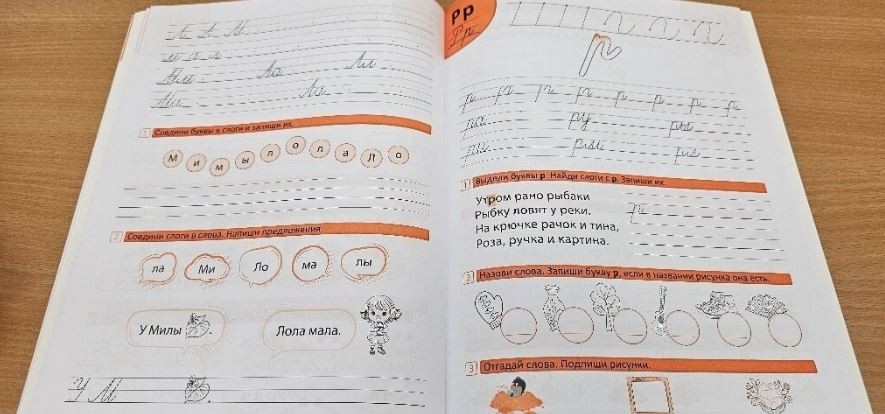 Ми
Ла
Ли
Ма
1 Соедини буквы в слоги и запиши их.
М и м ы л о л а Л о
2 Соедини слоги в слова. Напиши предложения.
ла Ми Ло ма лы
У Милы .
Лола мала.
У М
Рр
Рр
р р р р р р р р
ра ру ры
ри
1 Выдели буквы р. Найди слоги с р. Запиши их.
Утром рано рыбаки
Рыбку ловят у реки.
На крючке рачок и тина,
Роза, ручка и картина.
2 Назови слова. Запиши букву р, если в названии рисунка она есть.
3 Отгадай слова. Подпиши рисунки.